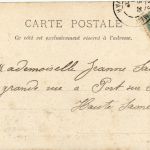 CARTE POSTALE
Ce côté est exclusivement réservé à l'adresse.
Mademoiselle Jeanne
grande rue à Port sur
Haute